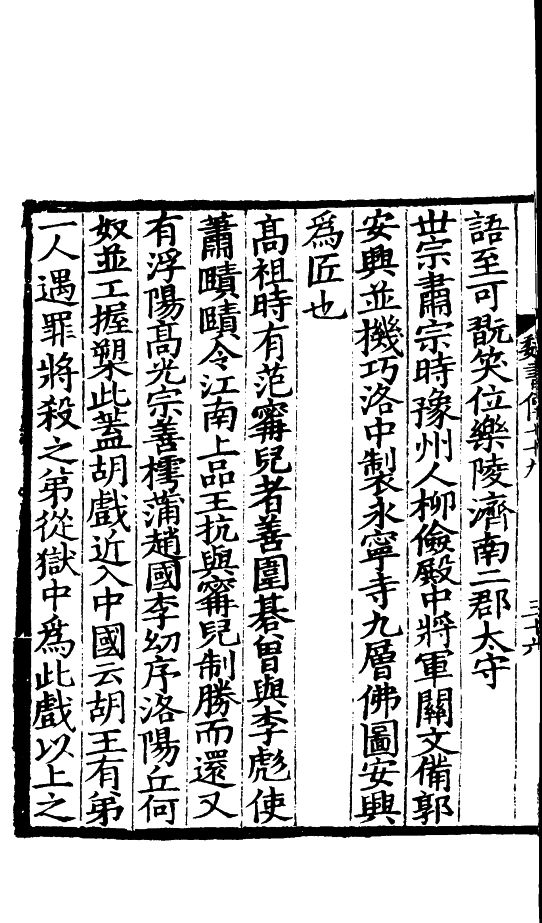 魏書傳七十九
三十六
語至可翫笑位樂陵濟南二郡太守
世宗肅宗時豫州人柳儉殿中將軍關文備郭
安興並機巧洛中製永寧寺九層佛圖安興
爲匠也
高祖時有范甯兒者善圍碁曾與李彪使
蕭賾賾令江南上品王抗與甯兒制勝而還又
有浮陽高光宗善樗蒲趙國李幼序洛陽丘何
奴並工握槊此蓋胡戲近入中國云胡王有弟
一人遇罪將殺之弟從獄中爲此戲以上之